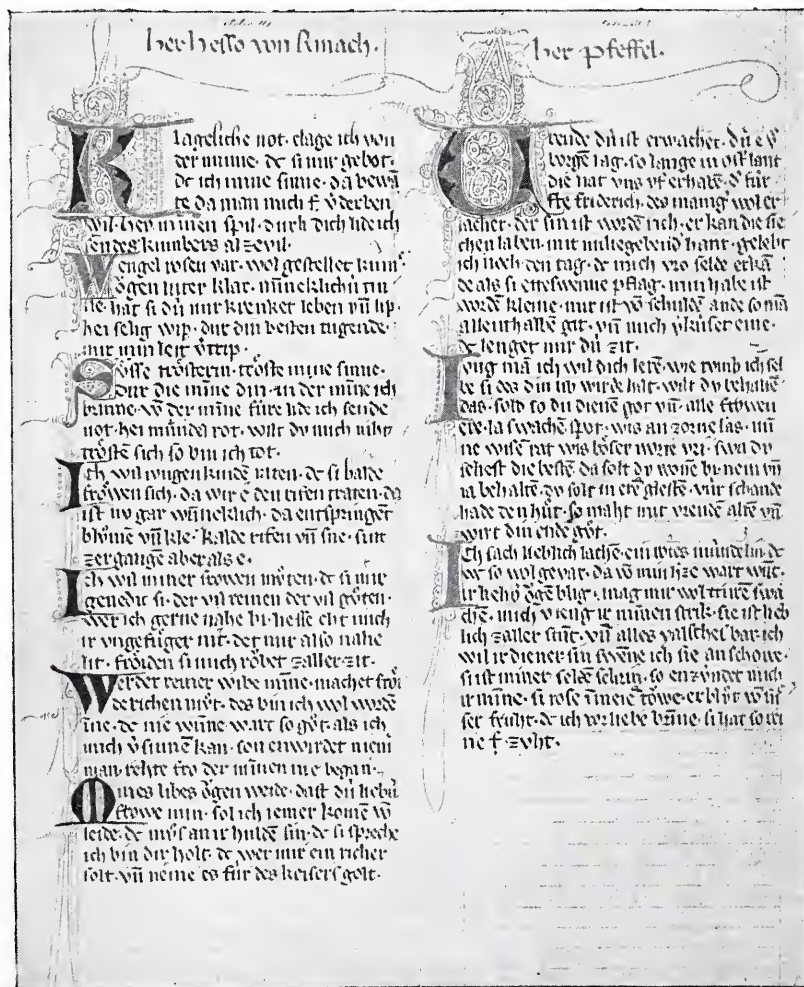 her hesso von Rinach.
Klageliche not. clage ich von
der minne. dc si mir gebot.
dc ich mine sinne. da bewā
te da man mich v͛ derben
wil. hey minen spil. durh dich lide ich
sendes kumbers al ze vil.
Wengel rosen var. wol gestellet kinne
ŏgen luter klar. minneklichū tin
ne. hat si dū mir krenket leben vn̄ lip.
hei selig wip. dur din besten tugende.
mir min leit v͛trip.
Sůsse trösterin. tröste mine sinne.
dur die minne din. in der minne ich
brinne. vō der minne fūre lide ich sende
not. hei mūndel rot. wilt dv mich niht
trösten sich so bin ich tot.
Ich wil iungen kinden raten. dc si balde
frŏwen sich. da wir e den rifen traten. da
ist nv gar wūneklich. da entspringēt
blůmē vn̄ kle. kalde rifen vn̄ sne. sint
zergangē aber als e.
Ich wil miner frowen můten. dc si mir
genedic si. der vil reinen der vil gůten.
wer ich gerne nahe bi. hesse ein mich
ir vngefůger nit. der mir also nahe
lit. frŏiden si mich rŏbet zaller zit.
Werder reiner wibe mīne. machet frŏi
de richen můt. des bin ich wol wordē
īne. dc nie wūne wart so gůt. als ich
mich v͛sinnē kan. son enwirdet niem͛
man. rehte fro der minnen nie began.
Mines libes ŏgen weide. dast dū liebū
frowe min. sol ich iemer komē vō
leide. dc můs an ir hulden sin. dc si spreche
ich bin dir holt. dc wer mir ein richer
solt. vn̄ neme es für des keisers golt.
her Pfeffel.
Erende dū ist erwachet. dū e v͛
borgē lag. so lange in ostlant
die hat vns vf erhabē. d͛ für
ste friderich. des manig wol er
lachet. der sin ist wordē rich. er kan die sie
chen laben. mit miltegebend͛ hant. gelebt
ich noch den tag. dc mich vro selde erkā
de als si etteswenne pflag. min habe ist
wordē kleine. mir ist vō schuldē ande so mā
allenthalbē git. vn̄ mich v͛kůset eine.
dc lenget mir dū zit.
Iung mā ich wil dich lerē. wie tvmb ich sel
be si des din lib wirde hat. wilt dv behaltē
das. solt so du dienē got vn̄. alle frŏwen
ere. la swachē spot. wis an zorne las. mi
ne wisē rat wis bŏser worte vri. swa dv
sehest die bestē da solt dv wonē bi. nein vn̄
ia behaltē. dv solt in erē glestē. vūr schande
habe den hůt. so maht mit vreuden altē vn̄
wirt din ende gůt.
Ich sach lieblich lachē. ein rotes mūndelin. dc
wc so wol gevar. da vō min h͛ze wart wūt.
ir kehō ŏgen blig. mag mir wol trurē swa
chē. mich v͛ieng ir minnen strik. sie ist lieb
lich zaller stūt. vn̄ alles valsches bar. ich
wil ir diener sin swēne ich sie an schowe.
si ist miner selde schrin. so enzůndet mich
ir minne. si rose in meiē towe. erblůt vō sůs
ser fruht. dc ich vor liebe brīne. si hat so rei
ne f͛. zvht.